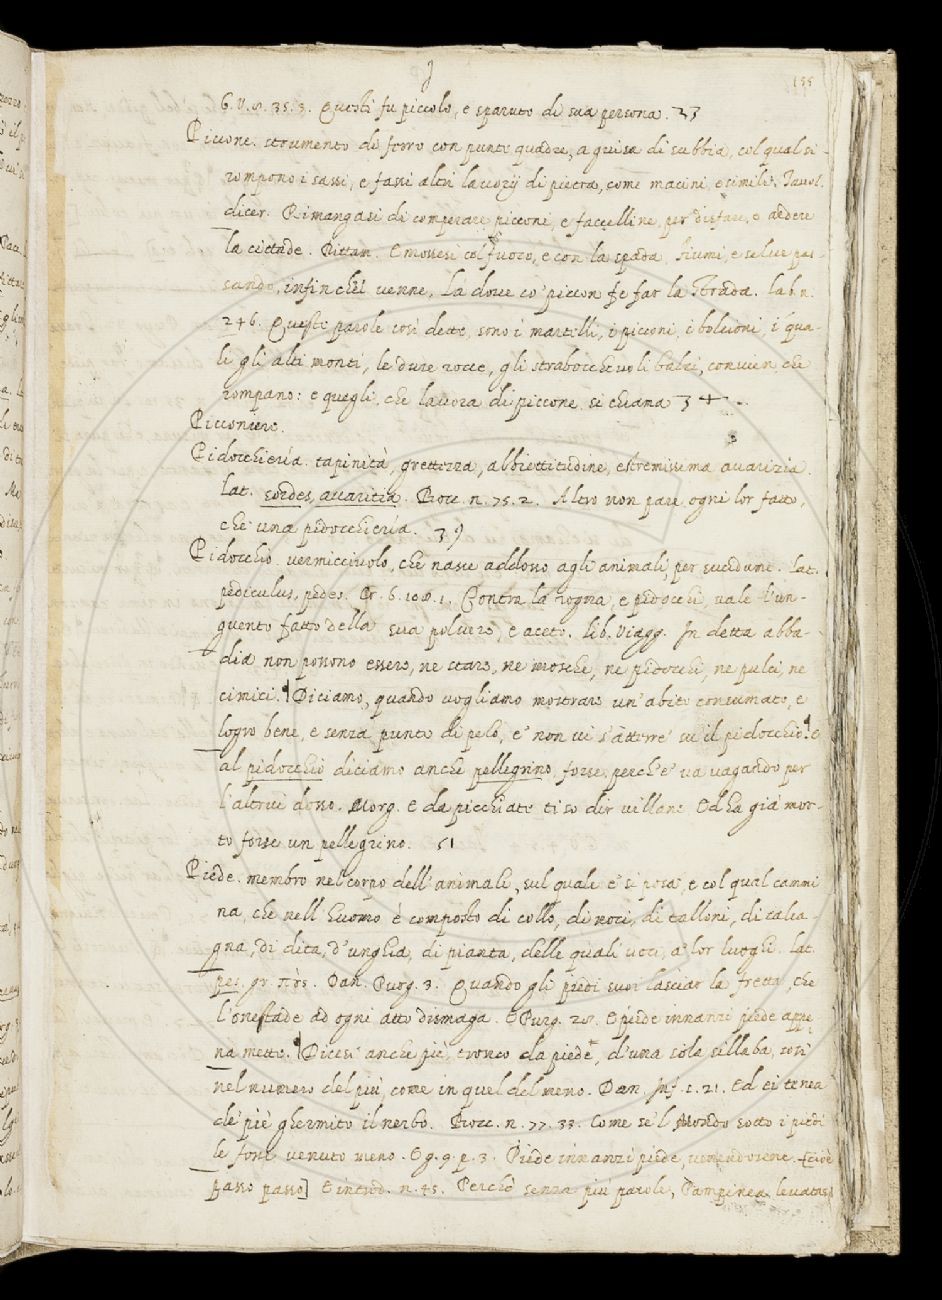 155
6. V. S. 35. 3. Questi fu piccolo, e sparuto di sua persona. 23
Piccone. strumento di ferro con punte quadre, a guisa di subbia, col qual si
rompono i sassi, e fassi altri lavorij di pietra, come macini, e simili. Tavol.
dicer. Rimangasi di comperare picconi, e faccelline, per disfare, o ardere
la cittade. Pittaff. E mossesi col fuoco, e con la spada. fiumi, e selve pas-
sando, infin chei venne, La dove co' piccon fe far la Strada. Lab. n.
246. Queste parole così dette, sono i martelli, i picconi, i bolcioni, i qua-
li gli alti monti, le dure rocce, gli strabocchevoli balzi, convien, che
rompano: e quegli, che lavora di piccone si chiama 34
Picconiere.
Pidocchieria. tapinità, grettezza, abbiettitudine, estremissima avarizia.
Lat. sordes, avaritia. Bocc. n. 75. 2. Altro non pare ogni lor fatto,
che una pidocchieria. 39
Pidocchio. vermicciuolo, che nasce addosso agli animali, per sucidume. Lat.
pediculus, pedes. Cr. 6. 10. 1. Contra la rogna, e pidocchi, vale l'un-
guento fatto della sua polvere, e aceto. lib. Viagg. In detta abba-
dia non possono essere, ne stare, ne mosche, ne pidocchi, ne pulci, ne
cimici. Diciamo, quando vogliamo mostrare un' abito consumato, e
logro bene, e senza punto di pelo, e' non vi s'atterre' su il pidocchio. E
al pidocchio diciamo anche pellegrino, forse, perch'e' va vagando per
l'altrui dosso. Morg. E da picchiate ti so dir villane Ed ha già mor-
to forse un pellegrino. 51
Piede. membro nel corpo dell' animale, sul quale e' si posa, e col qual cammi
na, che nell' huomo è composto di collo, di noci, di talloni, di calca-
gna, di dita, d'unghia, di pianta, delle quali voci, a' lor luoghi. Lat.
pes. gr. πὸς. Dan. Purg. 3. Quando gli piedi suoi lasciar la fretta, che
l'onestade ad ogni atto dismaga. E Purg. 28. E piede innanzi piede appe
na mette. Dicesi anche piè, tronco da piede, d'una sola sillaba, così
nel numero del più, come in quel del meno. Dan. Inf. c. 21. Ed ei tenea
de' piè ghermito il nerbo. Bocc. n. 77. 33. Come se 'l Mondo sotto i piedi
le fosse venuto meno. E g. 9. p. 3. Piede innanzi piede, venendosene [cioè
passo passo] E introd. n. 45. Perchè senza più parole, Pampinea levatasi